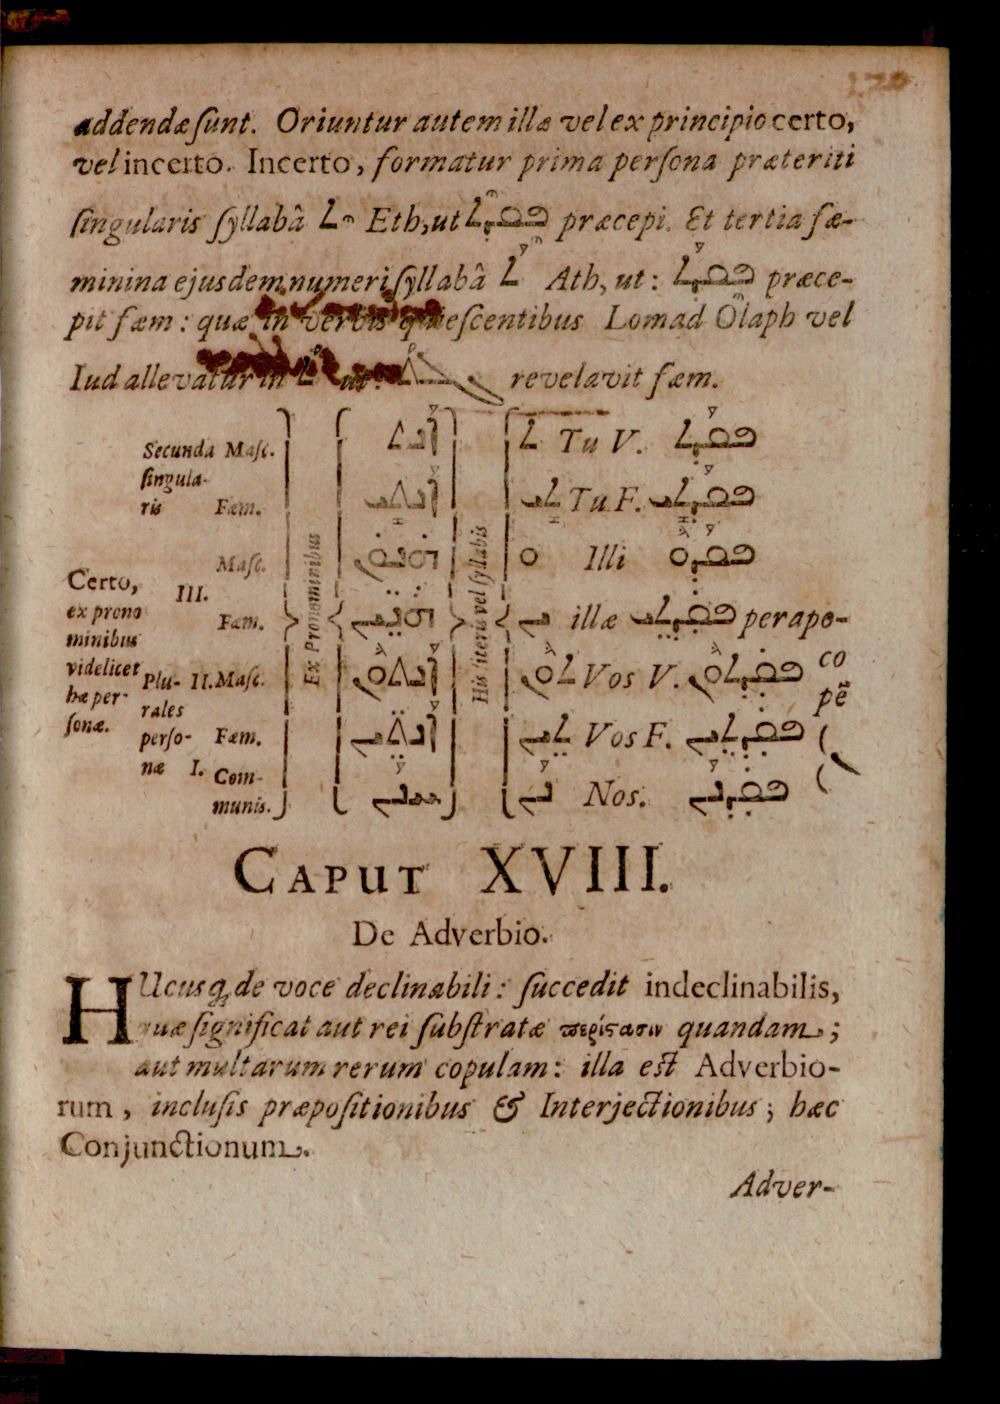 addendæ sunt. Oriuntur autem illæ vel ex principio certo,
vel incerto. Incerto, formatur prima persona præteriti
singularis syllabâ ܬ Eth, ut ܦܩܕܬ præcepi. Et tertia fæ-
minina ejusdem numeri syllabâ ܬ Ath, ut: ܦܩܕܬ præce-
pit fæm: quæ in verbis quiescentibus Lomad Olaph vel
Iud allevatur in ܬ ut: revelavit fæm.
Secunda Masc. ܐܢܬ ܬ Tu V. ܦܩܕܬ
singula-
ris Fæm. ܐܢܬܝ ܬܝ Tu F. ܦܩܕܬܝ
Masc. ܗܢܘܢ ܘ Illi ܦܩܕܘ
Certo, III.
ex prono Fæm. ܗܢܝܢ ܝܢ illæ per apo-
minibus
videlicet Plu- II. Masc. ܐܢܬܘܢ ܬܘܢ Vos V. ܦܩܕܬܘܢ co
hæ per- rales pē
sonæ. perso- Fæm. ܐܢܬܝܢ ܬܝܢ Vos F. ܦܩܕܬܝܢ
næ I. Com-
munis. ܚܢܢ ܢܢ Nos. ܦܩܕܢܢ
Ex Pronominibus
His literis vel syllabis
CAPUT XVIII.
De Adverbio.
HUcusq; de voce declinabili: succedit indeclinabilis,
quæ significat aut rei substratæ περίστασιν quandam;
aut multarum rerum copulam: illa est Adverbio-
rum, inclusis præpositionibus & Interjectionibus; hæc
Conjunctionum.
Adver-